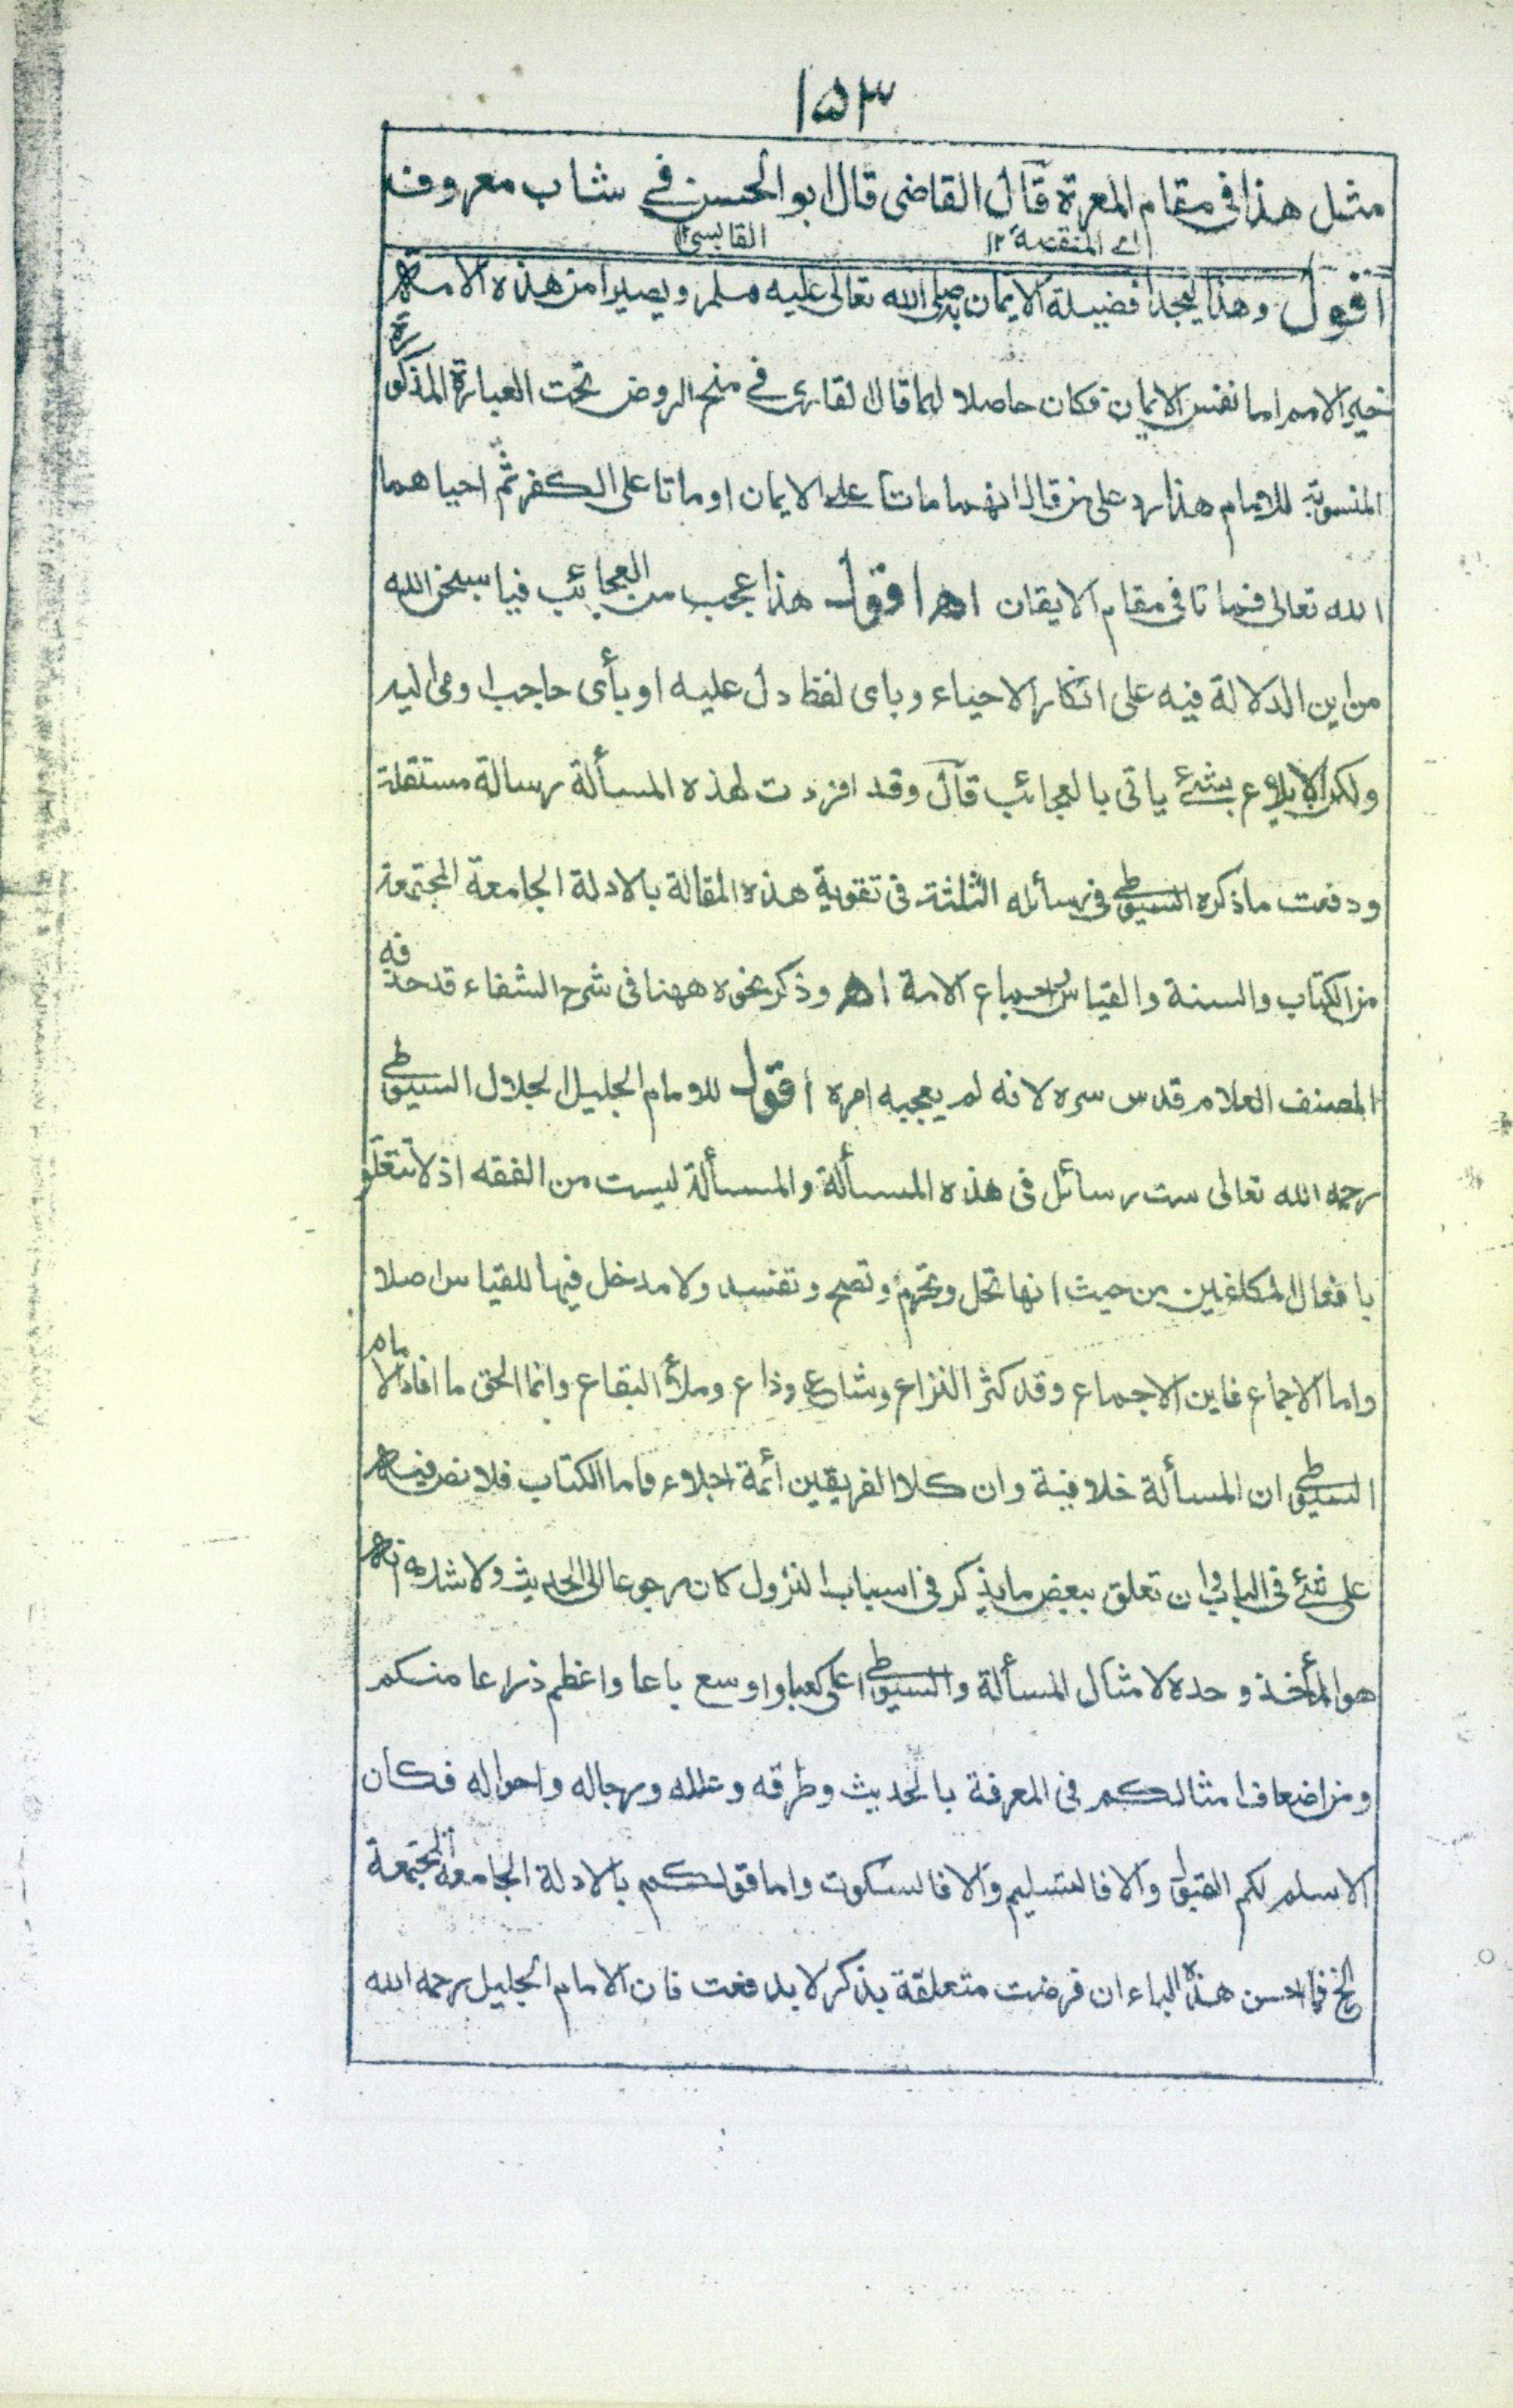 ١٥٣
مثل هذا فى مقام المعرة قال القاضى قال ابو الحسن فے شاب معروف
اے المنقصة ١٢ القابسى ١٢
اقول وهذا ليجدا فضيلة الايمان به صلى الله تعالى عليه وسلم ويصيرا من هذه الامة
خير الامم اما نفس الايمان فكان حاصلا لهما قال القارى فے منح الروض تحت العبارة المذكورة
المنسوبة للامام هذا رد على من قال انهما ماتا على الايمان او ماتا على الكفر ثم احياهما
الله تعالى فماتا فى مقام الايقان اھ اقول هذا عجب من العجائب فيا سبحن الله
من اين الدلالة فيه على انكار الاحياء وباى لفظ دل عليه او بأى حاجب اومى اليه
ولكن الايلاع بشئ ياتى بالعجائب قال وقد افردت لهذه المسألة رسالة مستقلة
ودفعت ما ذكره السيوطى فى رسائله الثلثة فى تقوية هذه المقالة بالادلة الجامعة المجتمعة
من الكتاب والسنة والقياس واجماع الامة اھ وذكر نحوه ههنا فى شرح الشفاء قد حذفه
المصنف العلام قدس سره لانه لم يعجبه امره اقول للامام الجليل الجلال السيوطى
رحمه الله تعالى ست رسائل فى هذه المسألة والمسألة ليست من الفقه اذ لا تتعلق
بافعال المكلفين من حيث انها تحل وتحرم وتصح وتفسد ولا مدخل فيها للقياس اصلا
واما الاجماع فاين الاجماع وقد كثر النزاع وشاع وذاع وملأ البقاع وانما الحق ما افاد الامام
السيوطى ان المسألة خلافية وان كلا الفريقين أئمة اجلاء فاما الكتاب فلا نص فيه
على شئ فى الباب وان تعلق ببعض ما يذكر فى اسباب النزول كان مرجوعا الى الحديث ولا شك انه
هو المأخذ وحده لامثال المسألة والسيوطى اعلى كعبا واوسع باعا واعظم ذراعا منكم
ومن اضعاف امثالكم فى المعرفة بالحديث وطرقه وعلله ورجاله واحواله فكان
الاسلم لكم القبول والا فالتسليم والا فالسكوت واما قولكم بالادلة الجامعة المجتمعة
الخ فما احسن هذه الباء ان فرضت متعلقة بذكر لا بدفعت فان الامام الجليل رحمه الله